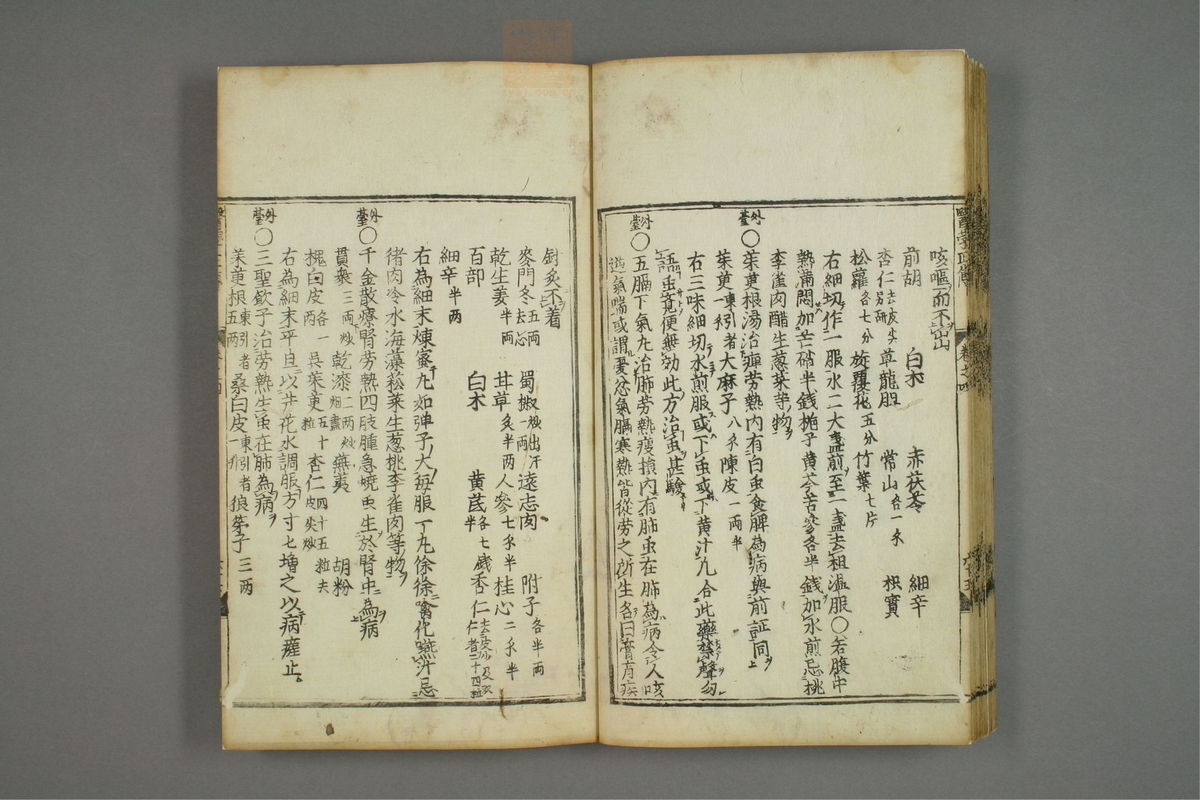 咳嘔而不出
前胡 白朮 赤茯苓 細辛
杏仁去皮尖另研 草龍胆 常山各一朩 枳實
松蘿各七分 旋覆花五分 竹葉七片
右細切作一服水二大盞煎至一盞去粗溫服〇若腹中
熱滿悶加芒硝半錢梔子黃芩苦參各半錢加水煎忌桃
李雀肉醋生葱菜等物
外臺〇茱萸根湯治痺劳熱內有白虫食脾為病與前証同
茱萸東引者大麻子八朩陳皮一两半
右三味細切水煎服或下虫或下黃汁凡合此藥禁聲勿
語虫竟便無効此方治虫甚驗
外臺〇五膈下氣丸治肺劳熱瘦損內有肺虫在肺為病令人咳
逆氣喘或謂憂恚氣膈寒熱皆從劳之所生各曰膏肓疾
針炙不着
麥門冬五两去心 蜀椒一两炒出汗 遠志肉 附子各半两
乾生姜半两 甘草炙半两 人參七朩半 桂心二朩半
百部 白朮 黃芪各七戔半 杏仁
細辛半两
右為細末煉蜜丸如弹子大每服一丸徐徐噙化嚥汁忌
猪肉冷水海藻菘菜生葱桃李雀肉等物
外臺〇千金散療腎劳熱四肢腫急燒虫生於腎中為病
貫衆三两炒 乾漆二两炒烟盡 蕪荑 胡粉
槐白皮各一两 吳茱萸五十粒 杏仁四十五粒去皮尖炒
右為細末平旦以井花水調服方寸匕增之以病瘥止
外臺〇三聖飲子治劳熱生虫在肺為病
茱萸根東引者五两 桑白皮東引者一升 狼牙子三两